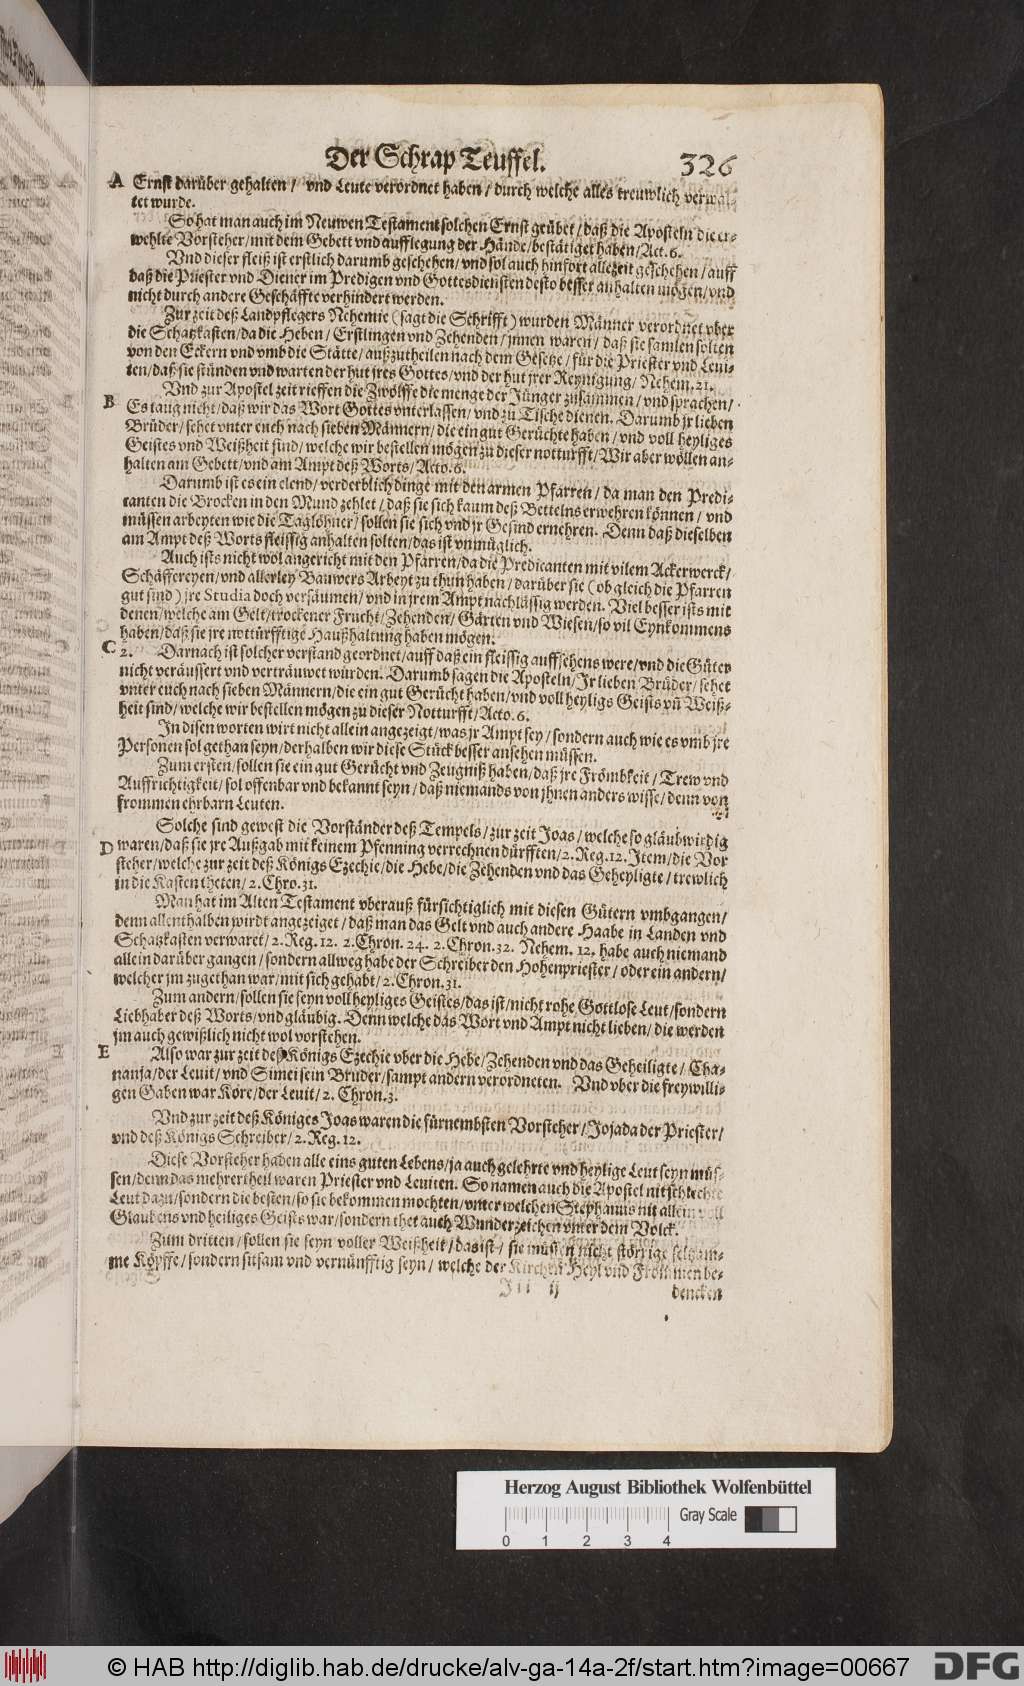 Der Schrap Teuffel. 326
A Ernst darüber gehalten / vnd Leute verordnet haben / durch welche alles treuwlich verwal-
tet wurde.
So hat man auch im Neuwen Testament solchen Ernst geübet / daß die Aposteln die er-
wehlte Vorsteher / mit dem Gebett vnd aufflegung der Hände / bestätiget haben / Act. 6.
Vnd dieser fleiß ist erstlich darumb geschehen / vnd sol auch hinfort allezeit geschehen / auff
daß die Priester vnd Diener im Predigen vnd Gottesdiensten desto besser anhalten mögen / vnd
nicht durch andere Geschäffte verhindert werden.
Zur zeit deß Landpflegers Nehemie (sagt die Schrifft) wurden Männer verordnet vber
die Schatzkasten / da die Heben / Erstlingen vnd Zehenden / jnnen waren / daß sie samlen solten
von den Eckern vnd vmb die Stätte / außzutheilen nach dem Gesetze / für die Priester vnd Leui-
ten / daß sie stünden vnd warten der hut jres Gottes / vnd der hut jrer Reynigung / Nehem. 21.
Vnd zur Apostel zeit rieffen die Zwölffe die menge der Jünger zusammen / vnd sprachen /
B Es taug nicht / daß wir das Wort Gottes vnterlassen / vnd zu Tische dienen. Darumb jr lieben
Brüder / sehet vnter euch nach sieben Männern / die ein gut Gerüchte haben / vnd voll heyliges
Geistes vnd Weißheit sind / welche wir bestellen mögen zu dieser notturfft / Wir aber wöllen an-
halten am Gebett / vnd am Ampt deß Worts / Acto. 6.
Darumb ist es ein elend / verderblich dinge mit den armen Pfarren / da man den Predi-
canten die Brocken in den Mund zehlet / daß sie sich kaum deß Bettelns erwehren können / vnd
müssen arbeyten wie die Taglöhner / sollen sie sich vnd jr Gesind ernehren. Denn daß dieselben
am Ampt deß Worts fleissig anhalten solten / das ist vnmüglich.
Auch ists nicht wol angericht mit den Pfarren / da die Predicanten mit vilem Ackerwerck /
Schäffereyen / vnd allerley Bauwers Arbeyt zu thun haben / darüber sie (ob gleich die Pfarren
gut sind) jre Studia doch versäumen / vnd in jrem Ampt nachlässig werden. Viel besser ists mit
denen / welche am Gelt / trockener Frucht / Zehenden / Gärten vnd Wiesen / so vil Eynkommens
haben / daß sie jre notturfftige Haußhaltung haben mögen.
C 2. Darnach ist solcher verstand geordnet / auff daß ein fleissig auffsehens were / vnd die Güter
nicht veräussert vnd verträuwet würden. Darumb sagen die Aposteln / Jr lieben Brüder / sehet
vnter euch nach sieben Männern / die ein gut Gerücht haben / vnd voll heyligs Geists vñ Weiß-
heit sind / welche wir bestellen mögen zu dieser Notturfft / Acto. 6.
In disen worten wirt nicht allein angezeigt / was jr Ampt sey / sondern auch wie es vmb jre
Personen sol gethan seyn / derhalben wir diese Stück besser ansehen müssen.
Zum ersten / sollen sie ein gut Gerücht vnd Zeugniß haben / daß jre Frömbkeit / Trew vnd
Auffrichtigkeit / sol offenbar vnd bekannt seyn / daß niemands von jhnen anders wisse / denn von
frommen ehrbarn Leuten.
Solche sind gewest die Vorständer deß Tempels / zur zeit Joas / welche so gläubwirdig
D waren / daß sie jre Außgab mit keinem Pfenning verrechnen dürfften / 2. Reg. 12. Item / die Vor
steher / welche zur zeit deß Königs Ezechie / die Hebe / die Zehenden vnd das Geheyligte / trewlich
in die Kasten theten / 2. Chro. 31.
Man hat im Alten Testament vberauß fürsichtiglich mit diesen Gütern vmbgangen /
denn allenthalben wirdt angezeiget / daß man das Gelt vnd auch andere Haabe in Landen vnd
Schatzkasten verwaret / 2. Reg. 12. 2. Chron. 24. 2. Chron. 32. Nehem. 12. habe auch niemand
allein darüber gangen / sondern allweg habe der Schreiber den Hohenpriester / oder ein andern /
welcher jm zugethan war / mit sich gehabt / 2. Chron. 31.
Zum andern / sollen sie seyn voll heyliges Geistes / das ist / nicht rohe Gottlose Leut / sondern
Liebhaber deß Worts / vnd gläubig. Denn welche das Wort vnd Ampt nicht lieben / die werden
jm auch gewißlich nicht wol vorstehen.
E Also war zur zeit deß Königs Ezechie vber die Hebe / Zehenden vnd das Geheiligte / Cha-
nanja / der Leuit / vnd Simei sein Bruder / sampt andern verordneten. Vnd vber die freywilli-
gen Gaben war Kore / der Leuit / 2. Chron. 3.
Vnd zur zeit deß Königes Joas waren die fürnembsten Vorsteher / Jojada der Priester /
vnd deß Königs Schreiber / 2. Reg. 12.
Diese Vorsteher haben alle eins guten Lebens / ja auch gelehrte vnd heylige Leut seyn müs-
sen / denn das mehrertheil waren Priester vnd Leuiten. So namen auch die Apostel nit schlechte
Leut dazu / sondern die besten / so sie bekommen mochten / vnter welchen Stephanus nit allein voll
Glaubens vnd heiliges Geists war / sondern thet auch Wunderzeichen vnter dem Volck.
Zum dritten / sollen sie seyn voller Weißheit / das ist / sie müssen nicht störrige seltzam-
me Köpffe / sondern sitsam vnd vernünfftig seyn / welche der Kirchen Heyl vnd Frommen be-
Jii ij dencken
Herzog August Bibliothek Wolfenbüttel
Gray Scale
0 1 2 3 4
© HAB http://diglib.hab.de/drucke/alv-ga-14a-2f/start.htm?image=00667
DFG